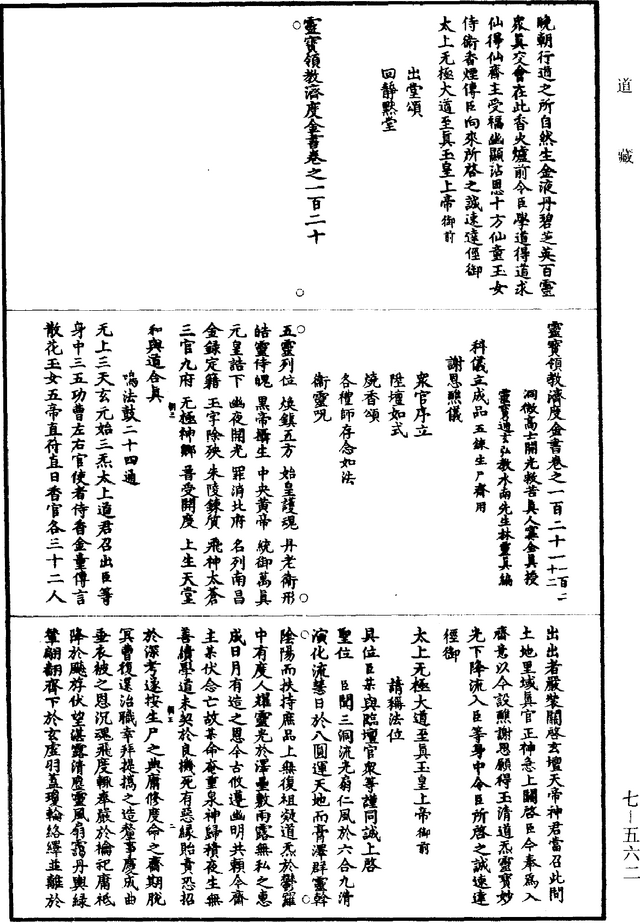 道藏
晚朝行道之所自然生金液丹碧芝英百靈
衆真交會在此香火爐前令臣學道得道求
仙得仙齋主受福幽顯沾恩十方仙童玉女
侍衛香煙傳臣向來所啓之誠速達徑御
太上无極大道至真玉皇上帝御前
出堂頌
回靜默堂
靈寶領教濟度金書卷之一百二十
靈寶領教濟度金書卷之一百二十一
洞微高士開光救苦真人甯全真授
靈寶通玄弘教水南先生林靈真編
科儀立成品五鍊生尸齋用
謝恩醮儀
衆官序立
陞壇如式
燒香頌
各種師存念如法
衛靈呪
五靈列位 煥鎮五方 始皇護魂 丹老衛形
皓靈侍魄 黑帝攝生 中央黃帝 統御萬真
元皇誥下 幽夜開光 罪消北府 名列南昌
金錄定籍 玉字除殃 朱陵鍊質 飛神太蒼
三官九府 无極神鄉 普受開度 上生天堂
和與道合真
鳴法鼓二十四通
无上三天玄元始三炁太上道君召出臣等
身中三五功曹左右官使者侍香金童傳言
散花玉女五帝直符直日香官各三十二人
出出者嚴裝關啓玄壇天帝神君當召此間
土地里域真官正神急上關啓臣今奉爲入
齋意以今設醮謝恩願得玉清道炁靈寶妙
光下降流入臣等身中令臣所啓之誠速達
徑御
太上无極大道至真玉皇上帝御前
請稱法位
具位臣某與臨壇官衆等謹同誠上啓
聖位 臣聞三洞流光翁仁風於六合九清
演化流慧日於八圓運天地而膏澤群靈幹
陰陽而扶持庶品上無復祖凝道炁於鬱羅
中有度人耀靈光於澤墨數雨露無私之惠
成日月有造之恩今古攸遵幽明共賴今齋
主某伏念亡故某命奄重泉神歸積夜生無
善績學道未契於良機死有惡緣貽責恐招
於深考遂按生尸之典庸修度命之齋期脫
冥曹復還治職幸拜提攜之造
垂衣被之恩沉魂飛度輒奉嚴於
降於飈游伏望諶露清塵靈風翁靄丹輿綠
輦翩翻齊下於玄虛羽蓋瓊輪絡繹並離於
七—五六二